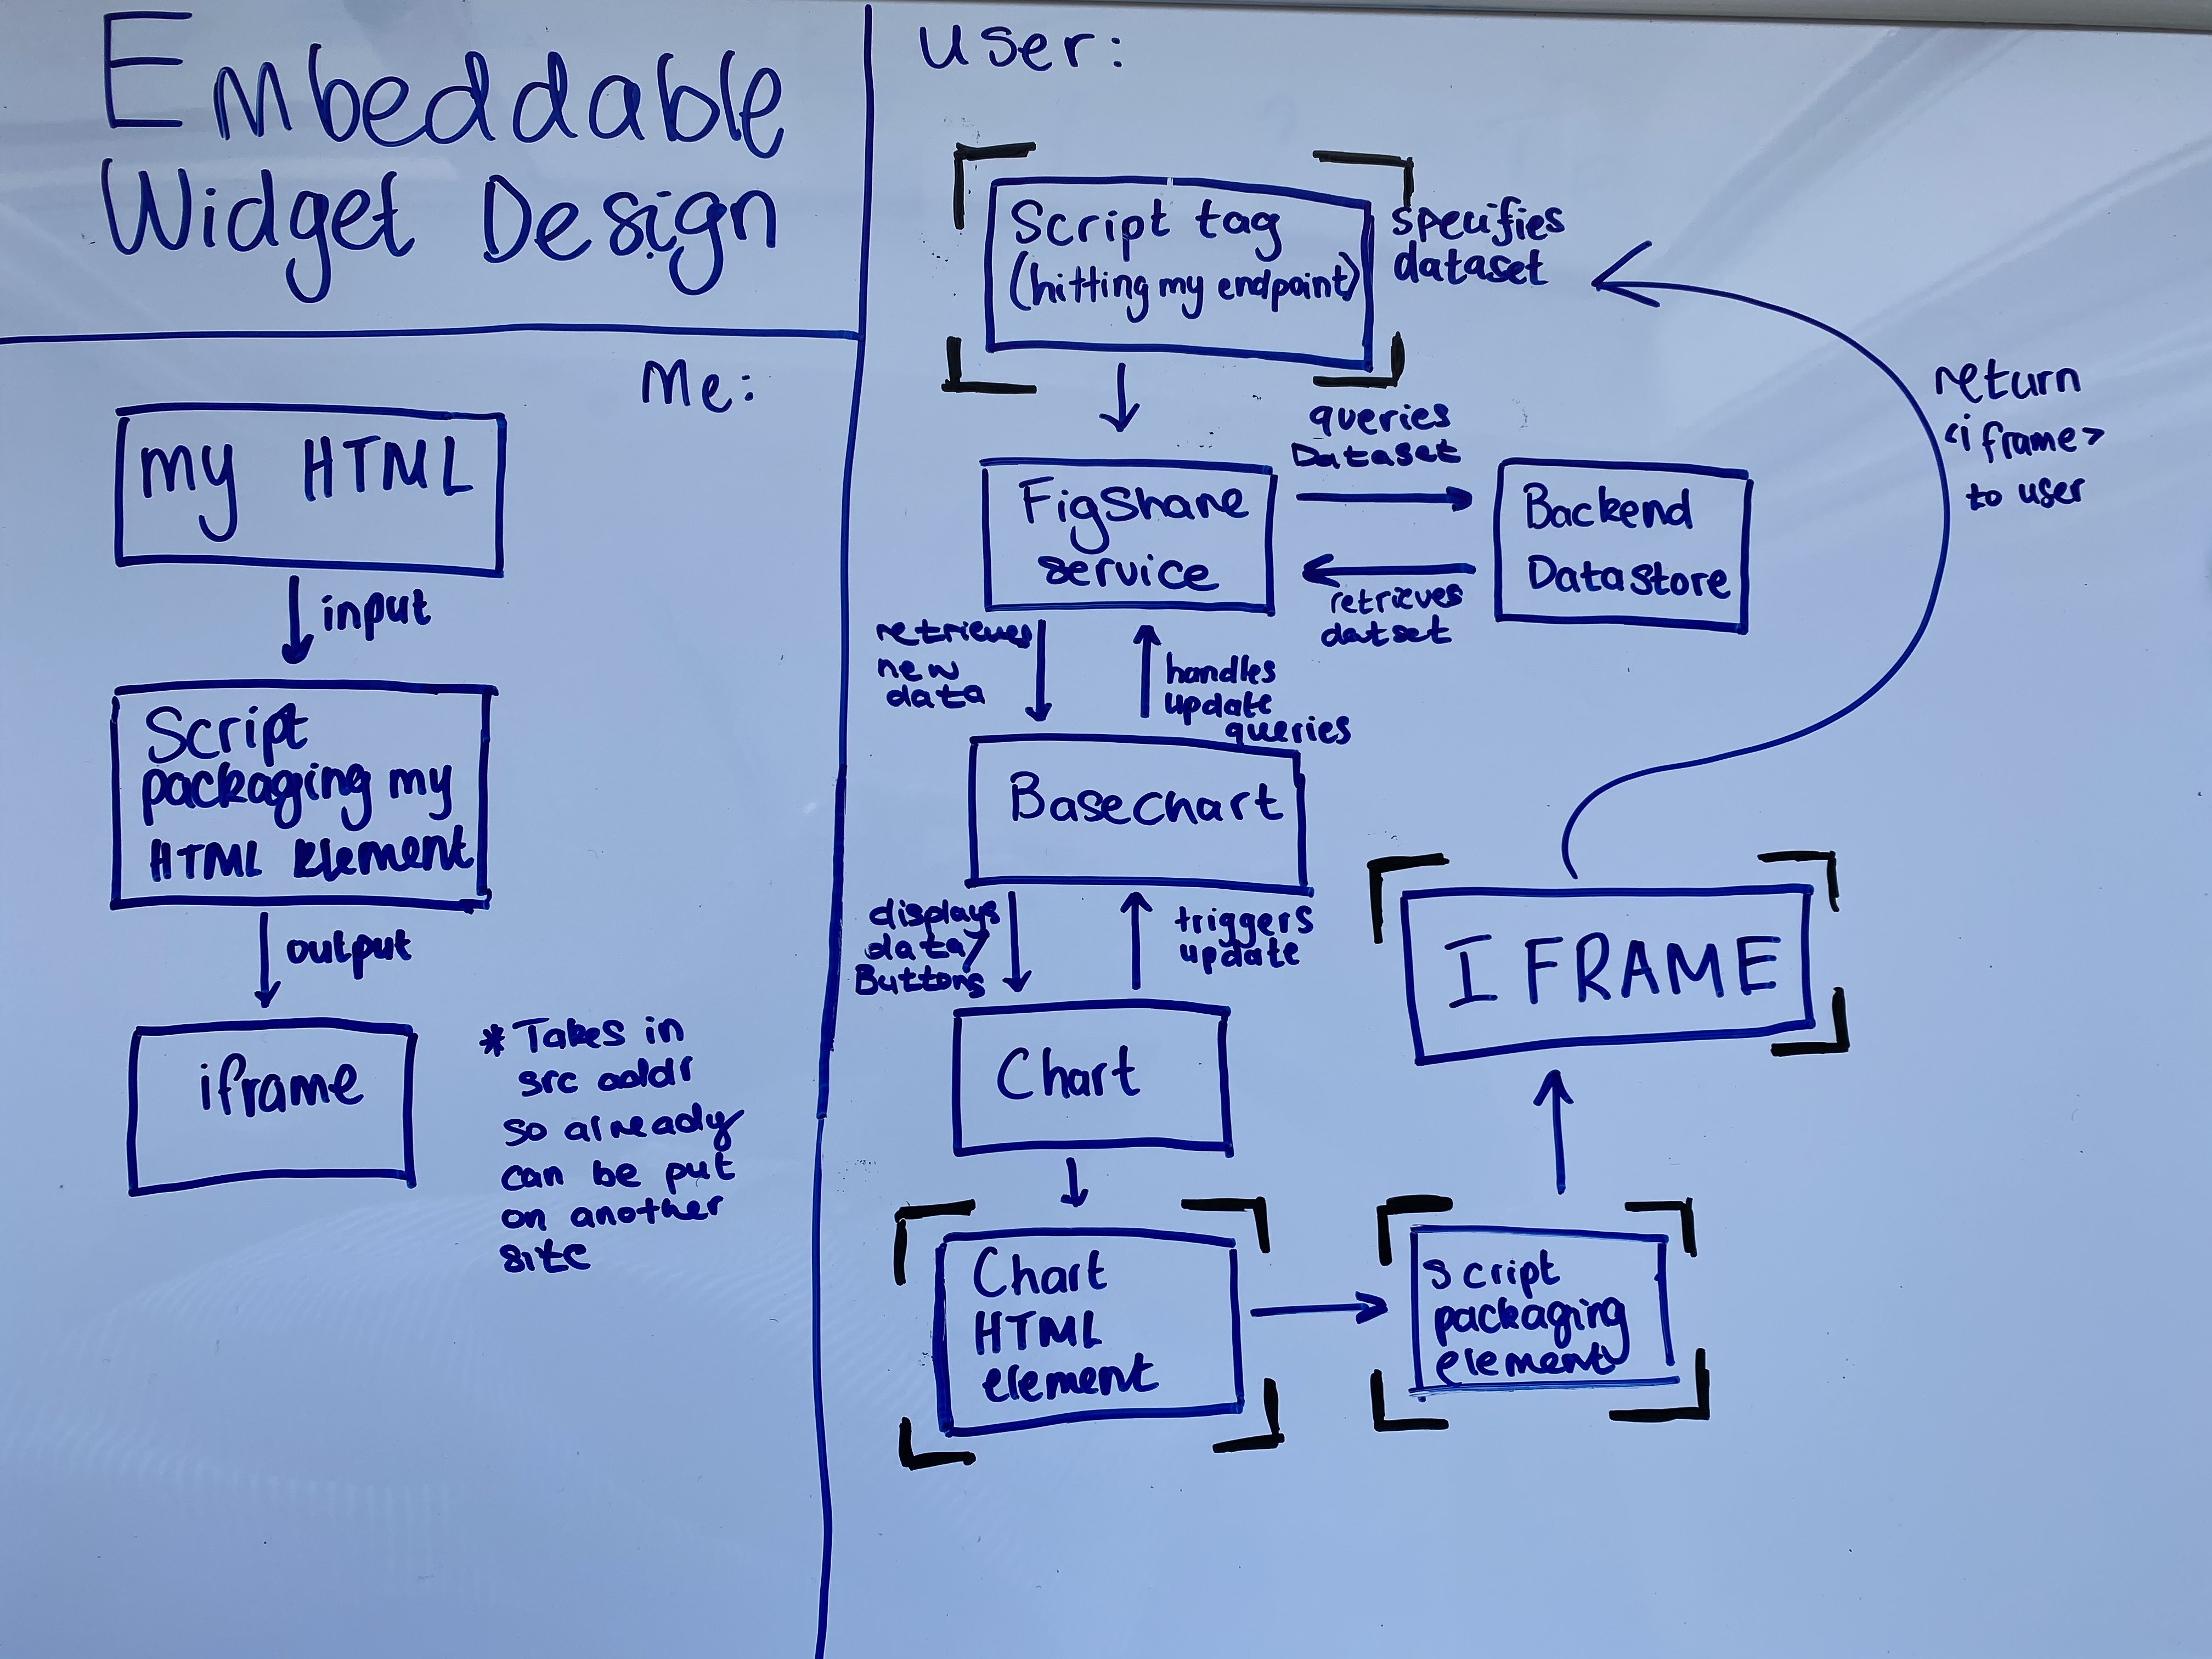 Embeddable
Widget Design
Me:
My HTML
input
Script
packaging my
HTML Element
output
iframe
*Takes in
src addr
so already
can be put
on another
site
User:
Script tag
(hitting my endpoint)
specifies
dataset
return
<iframe>
to user
FigShare
service
queries
Dataset
retrieves
dataset
Backend
Datastore
retrieves
new
data
handles
update
queries
Basechart
displays
data/
Buttons
triggers
update
Chart
Chart
HTML
element
script
packaging
element
IFRAME